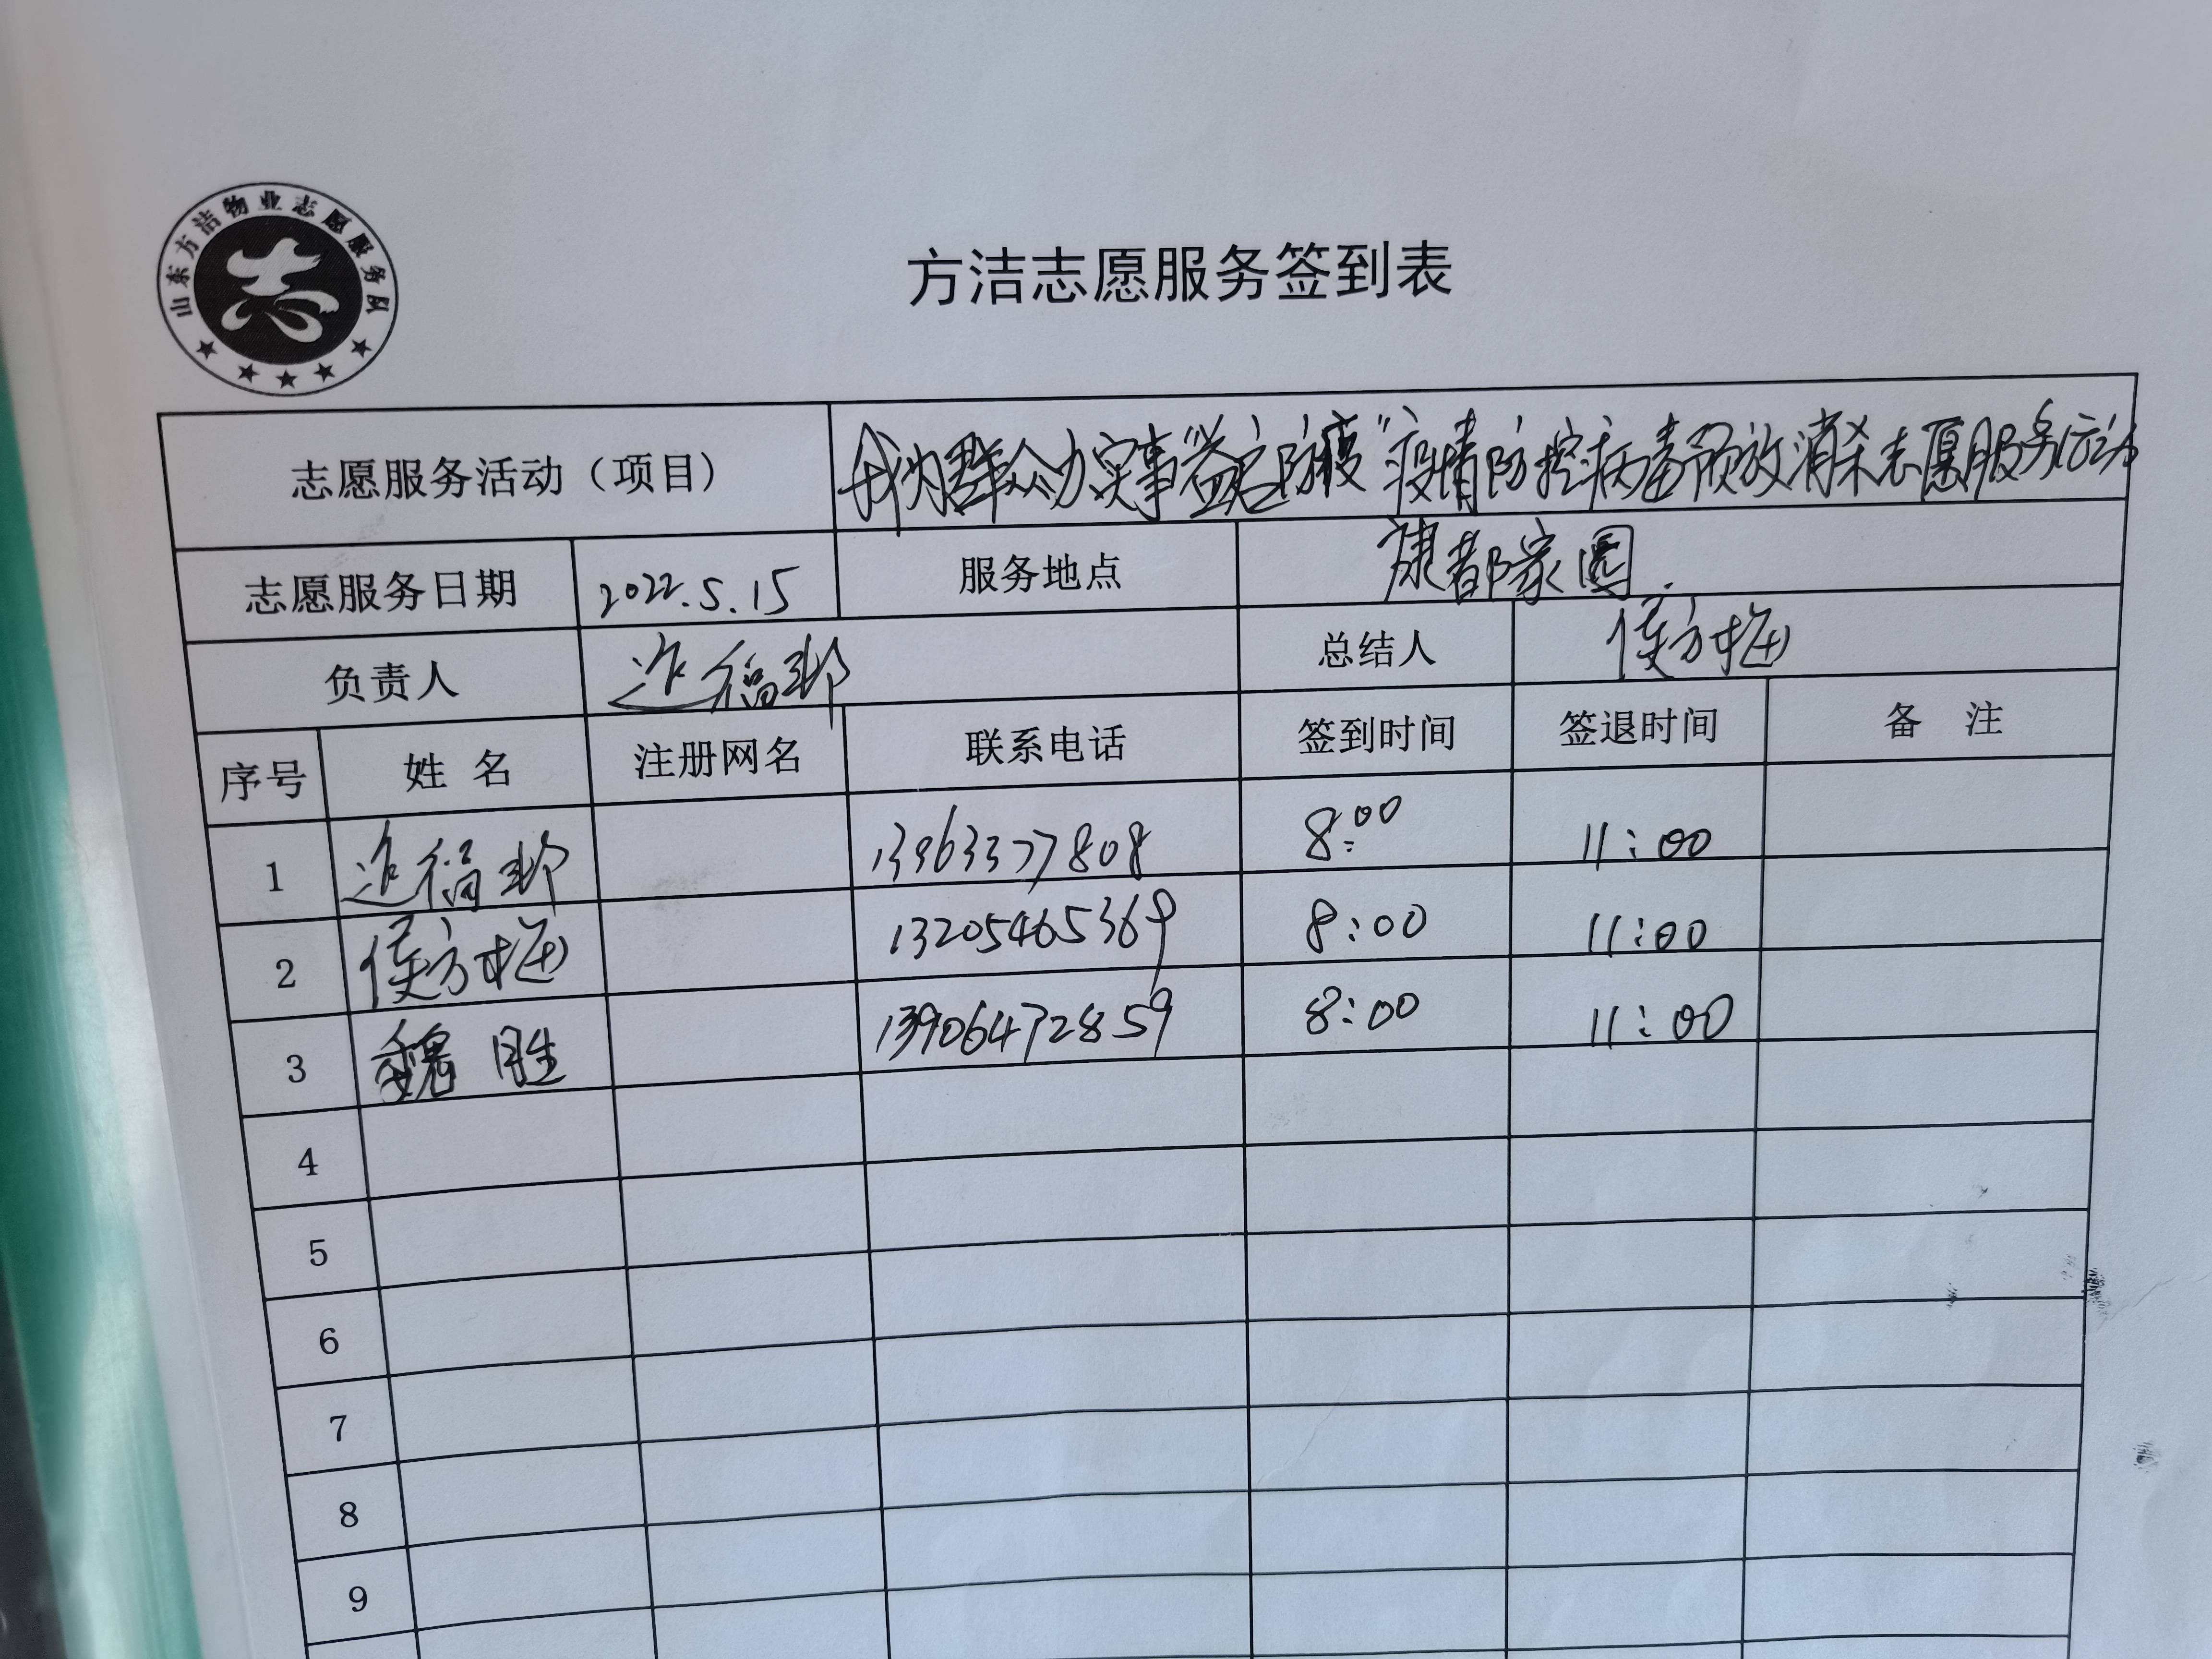 山东方洁物业志愿服务队
志
方洁志愿服务签到表
志愿服务活动（项目） 我为群众办实事"益启防疫"疫情防控病毒预放消杀志愿服务活动
志愿服务日期 2022.5.15 服务地点 康都家园.
负责人 总结人 侯方梅
序号 姓 名 注册网名 联系电话 签到时间 签退时间 备 注
1 13963377808 8:00 11:00
2 侯方梅 13205465369 8:00 11:00
3 魏胜 13906472859 8:00 11:00
4
5
6
7
8
9